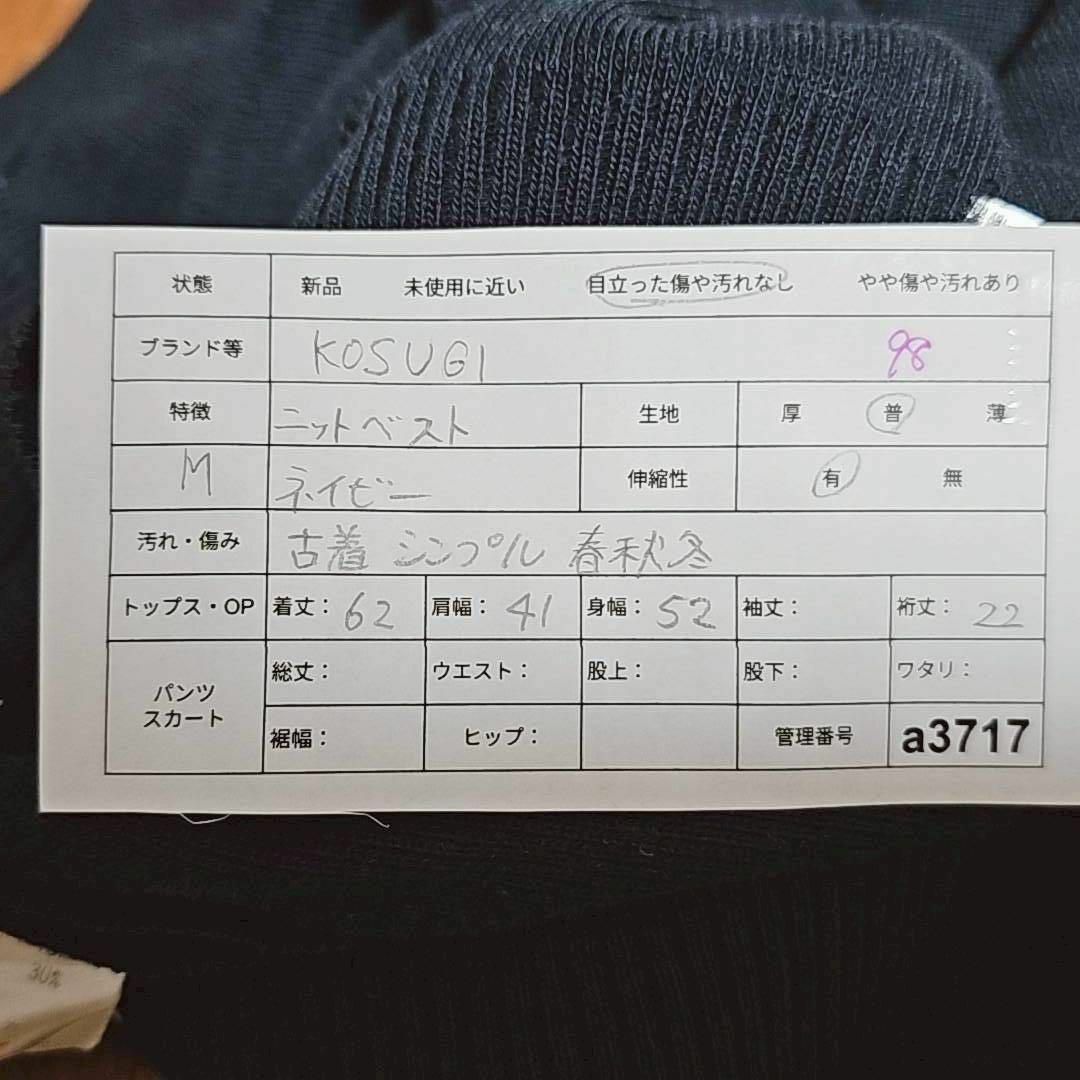 状態 新品 未使用に近い 目立った傷や汚れなし やや傷や汚れあり
ブランド等 KOSUGI 98
特徴 ニットベスト 生地 厚 普 薄
M ネイビー 伸縮性 有 無
汚れ・傷み 古着 シンプル 春秋冬
トップス・OP 着丈: 62 肩幅: 41 身幅: 52 袖丈: 裄丈: 22
パンツ スカート 総丈: ウエスト: 股上: 股下: ワタリ:
裾幅: ヒップ: 管理番号 a3717
30%